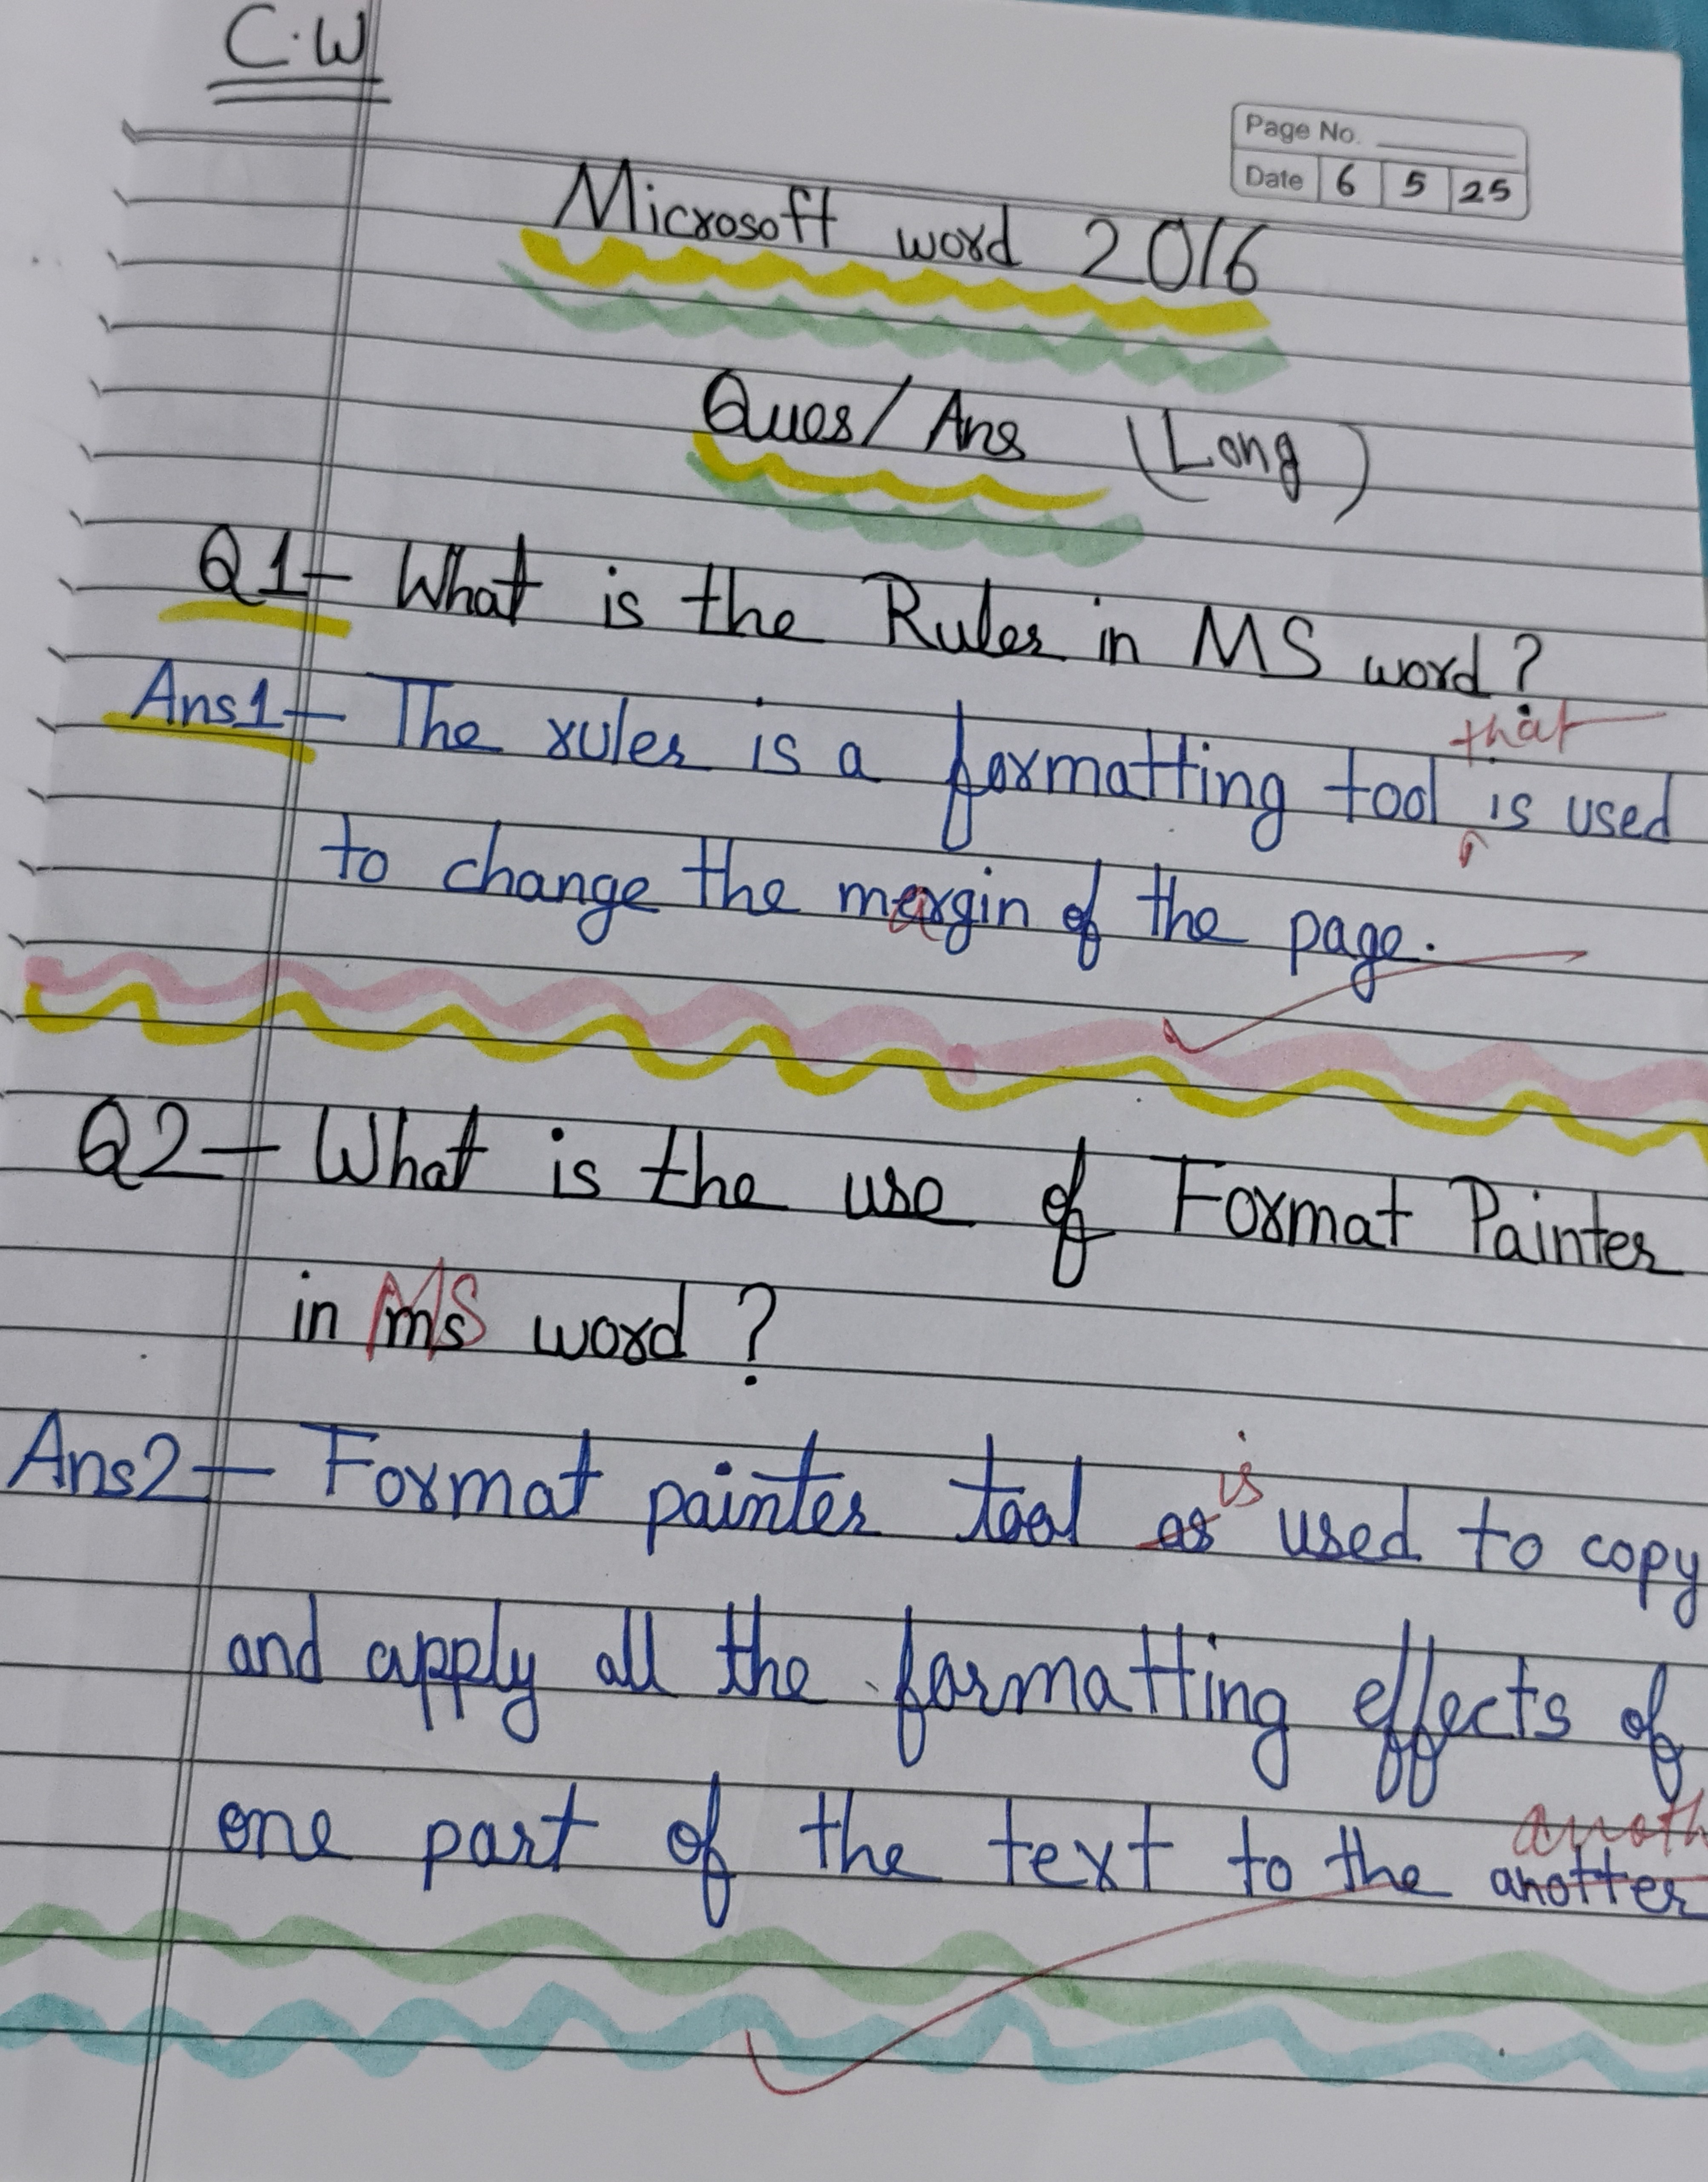 C.W
Page No.
Date 6 5 25
Microsoft word 2016
Ques/Ans (Long)
Q1- What is the Ruler in MS word?
that
Ans1- The ruler is a formatting tool is used
to change the margin of the page.
Q2- What is the use of Format Painter
in MS word?
is
Ans2- Format painter tool as used to copy
and apply all the formatting effects of
anoth
one part of the text to the anotter